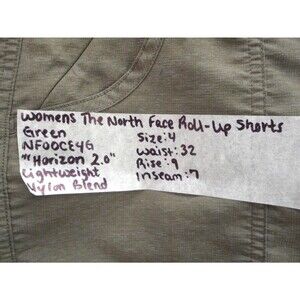 Womens The North Face Roll-Up Shorts
Green
NF00CE4G
"Horizon 2.0"
Lightweight
Nylon Blend
Size: 4
Waist: 32
Rise: 9
Inseam: 7